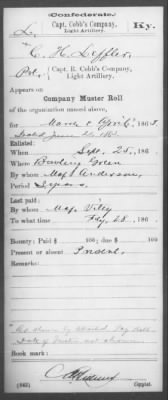 (Confederate.)
L. Capt. Cobb's Company, Light Artillery. Ky.
C. H. Leffler
Pvt., Capt. R. Cobb's Company, Light Artillery.
Appears on
Company Muster Roll
of the organization named above,
for March & April, 1863.
Dated June 186
Enlisted:
When Sept. 25, 186
Where Bowling Green
By whom Maj. Anderson
Period 3 years
Last paid:
By whom Maj. Viley
To what time Feby 28, 186
Bounty: Paid $ 100; due $ 100
Present or absent Present
Remarks:
Not shown by
Date of muster not shown
Book mark:
(642) Copyist.